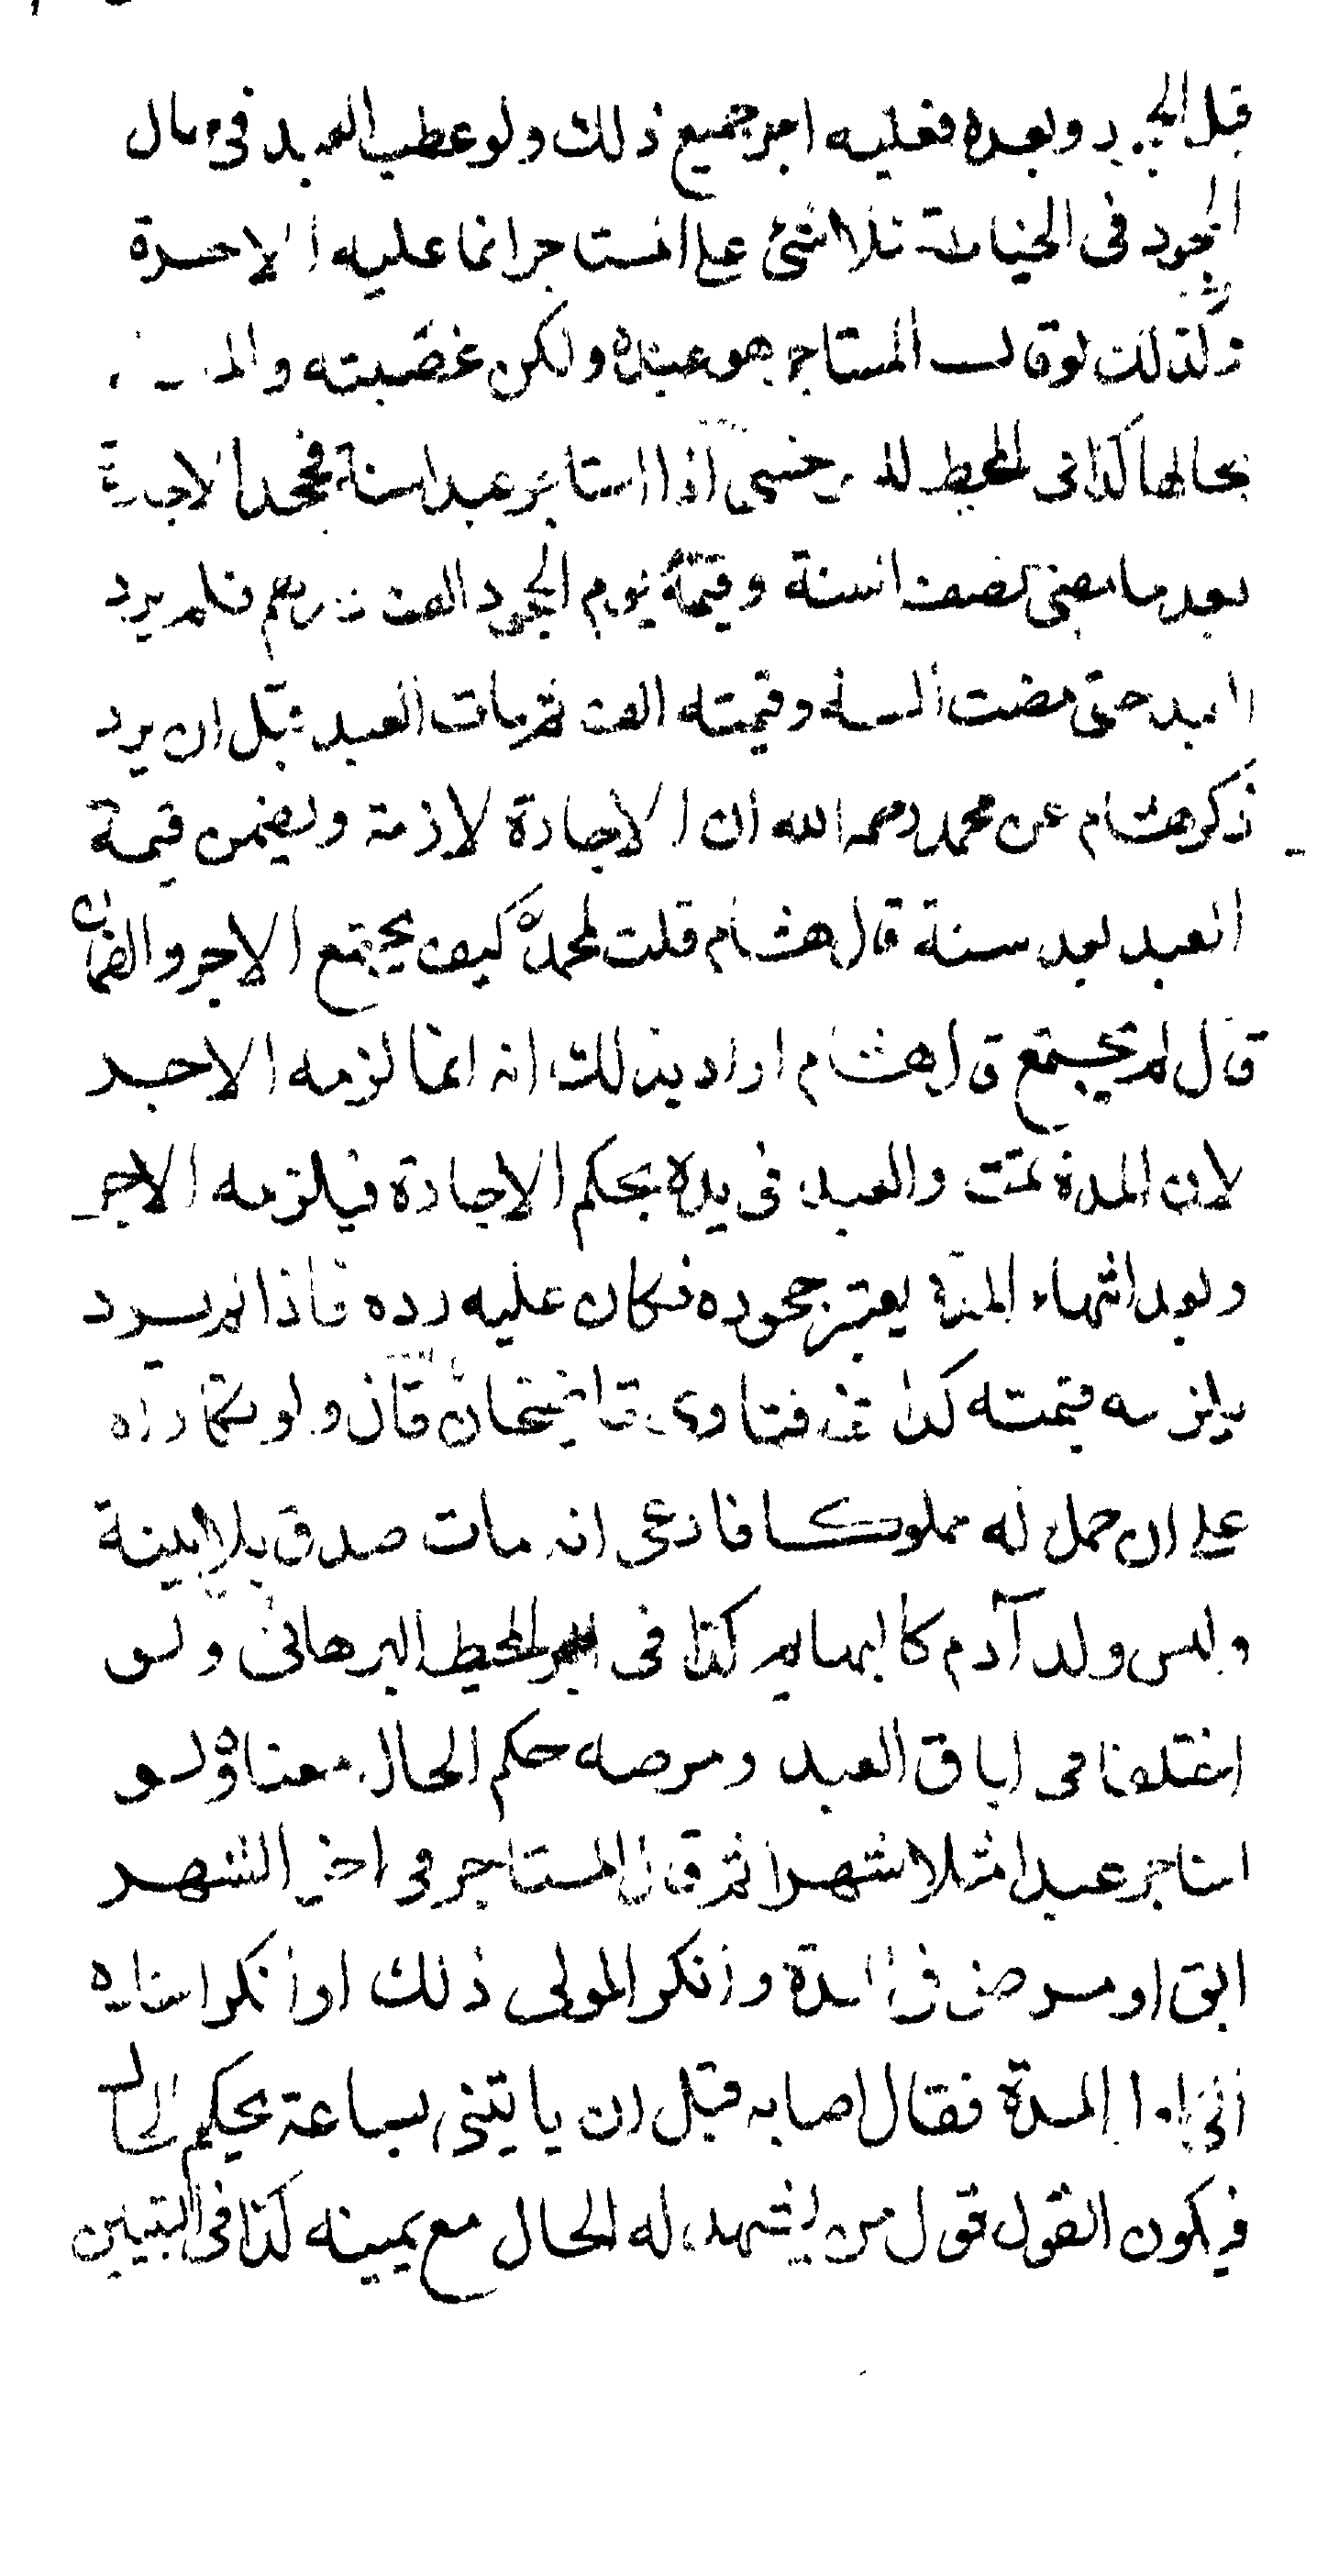 قبل الجحود وبعده فعليه اجر جميع ذلك ولو عطب العبد في حال
الجحود في الخياطة فلا شئ على المستاجر انما عليه الاجرة
وكذلك لو قال المستاجر هو عبده ولكن غصبته
بحالها كذا في المحيط للسرخسي اذا استاجر عبدا سنة فجحد الاجارة
بعد ما مضى نصف السنة وقيمته يوم الجحود الف درهم فلم يرد
العبد حتى مضت السنة وقيمته الف ثم مات العبد قبل ان يرد
ذكر هشام عن محمد رحمه الله ان الاجارة لازمة ويضمن قيمة
العبد بعد سنة قال هشام قلت لمحمد كيف يجتمع الاجر والضمان
قال لم يجتمع قال هشام اراد بذلك انه انما لزمه الاجر
لان المدة تمت والعبد في يده بحكم الاجارة فيلزمه الاجر
وبعد انتهاء المدة يعتبر جحوده فكان عليه رده فاذا لم يرد
يلزمه قيمته كذا في فتاوى قاضيخان قال ولو تكاراه
على ان حمل له مملوكا فادعى انه مات صدق بلا بينة
وليس ولد آدم كالبهايم كذا في المحيط البرهاني ولو
اختلفا في اباق العبد ومرضه حكم الحال معناه ولو
استاجر عبدا مثلا شهرا ثم قال المستاجر في اخر الشهر
ابق او مرض في المدة وانكر المولى ذلك او انكر اسناده
الى اول المدة فقال اصابه قبل ان ياتيني بساعة يحكم الحال
فيكون القول قول من يشهد له الحال مع يمينه كذا في التبيين